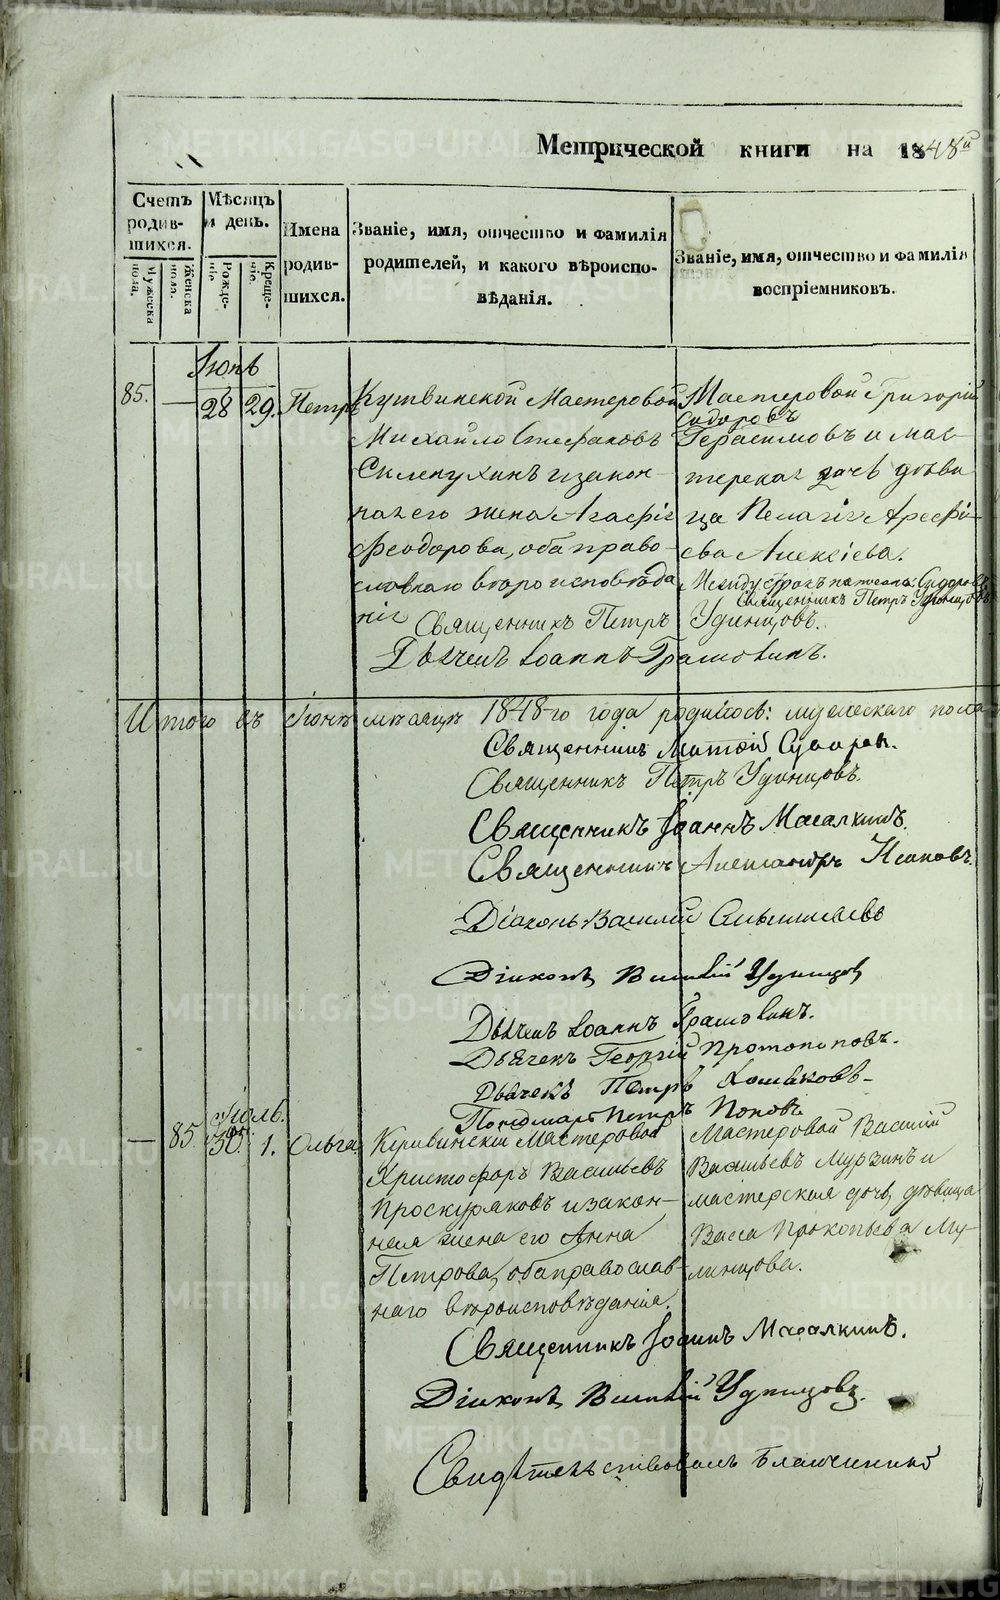 METRIKI.GASO-URAL.RU
Метрической книги на 1848й
Счетъ родив-шихся.
Мужеска пола.
Женска пола.
Мѣсяцъ и день.
Рожде-ніе.
Креще-ніе.
Имена родив-шихся.
Званіе, имя, отчество и фамилія
родителей, и какого вѣроиспо-
вѣданія.
Званіе, имя, отчество и фамилія
воспріемниковъ.
Іюнь
85. — 28 29. Петръ
Кушвинской Мастеровой
Михайло Стефановъ
и закон-
ная его жена Агафія
Феодорова, оба право-
славнаго вѣроисповѣда
нія
Мастеровой Григорій
Сидоровъ
Герасимовъ и мас-
терская дочь дѣви
ца Пелагія Арефи-
ева Алексѣева.
Между строкъ написано: Сидоровъ
Священникъ Петръ Удинцовъ
Священникъ Петръ Удинцовъ.
Дьячекъ Іоаннъ
Итого въ Іюнѣ мѣсяцѣ 1848-го года родилось: мужескаго пола
Священникъ
Священникъ Петръ Удинцовъ.
Священникъ Іоаннъ Масалкинъ.
Священникъ Александръ
Діаконъ Василій
Діаконъ Василій Удинцовъ
Дьячекъ Іоаннъ
Дьячекъ Георгій Протопоповъ.
Дьячекъ Петръ
Пономарь Петръ Поповъ
Іюль.
— 85 30. 1. Ольга
Кушвинскій Мастеровой
Христофоръ Васильевъ
Проскуряковъ и закон-
ная жена его Анна
Петрова, оба православ-
наго вѣроисповѣданія.
Мастеровой Василій
Васильевъ Мурзинъ и
мастерская дочь, дѣвица
Васса Прокопьева Му-
линцова.
Священникъ Іоаннъ Масалкинъ.
Діаконъ Василій Удинцовъ.
Свидѣтельствовалъ Благочинный